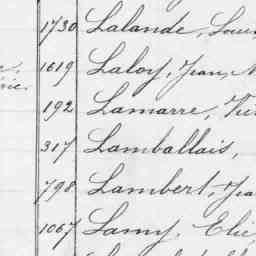 1730 Lalande, Louis
1619 Laloy, Jean, N
192 Lamarre, Vic
317 Lamballais,
798 Lambert, Jea
1067 Lamy, Elie